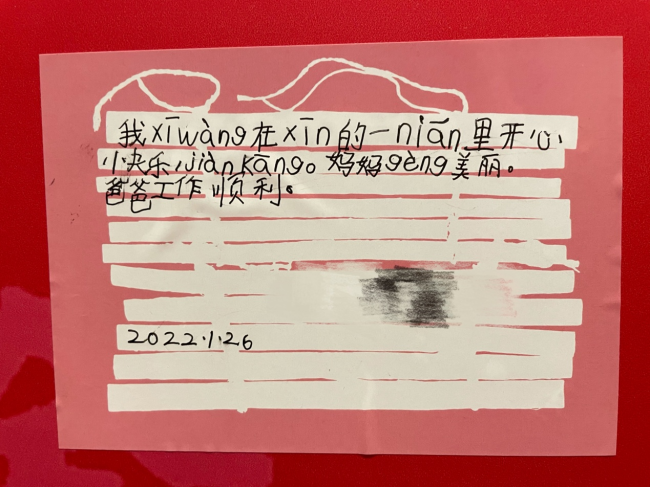 我xīwàng在xīn的一nián里开心、
快乐、jiànkāng。妈妈gèng美丽。
爸爸工作顺利。
2022.1.26